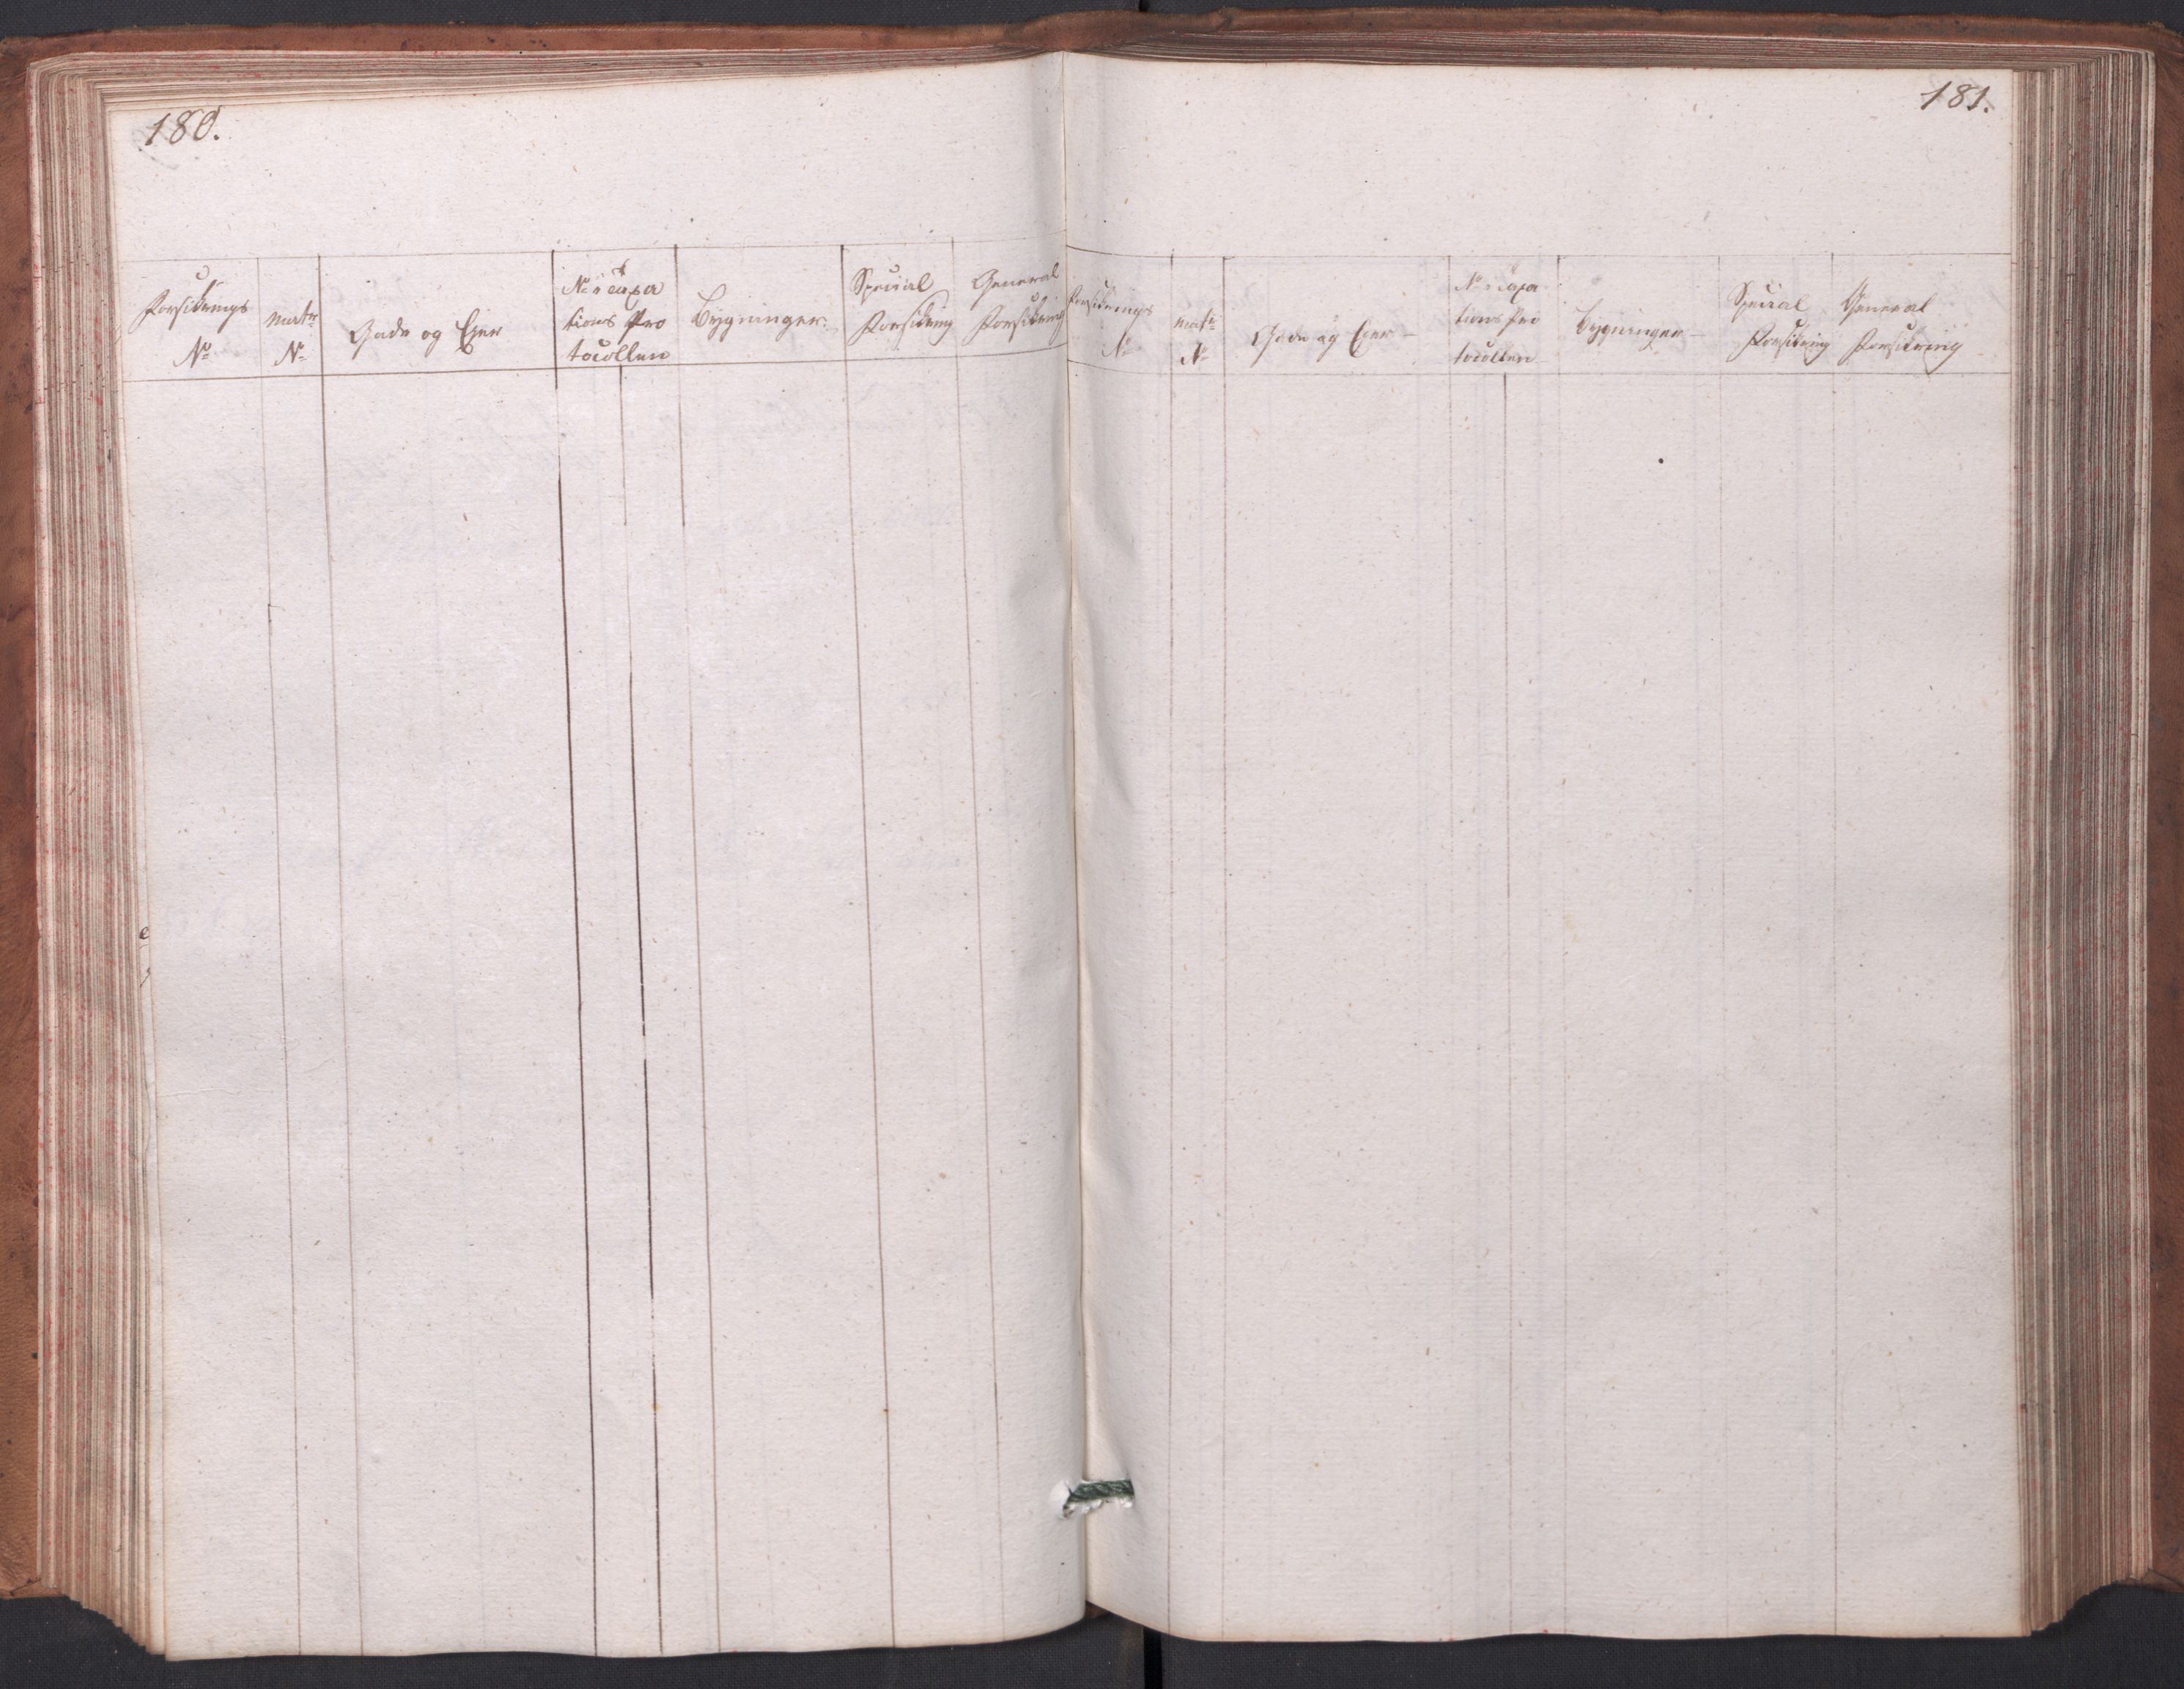 180.
Forsikrings
No
Matr
No
Gade og Ejer
No i Taxa
tions Pro
tocollen
Bygninger.
Special
Forsikring
General
Forsikring
181.
Forsikrings
No
Matr
No
Gade og Ejer
No i Taxa
tions Pro
tocollen
Bygninger
Special
Forsikring
General
Forsikring